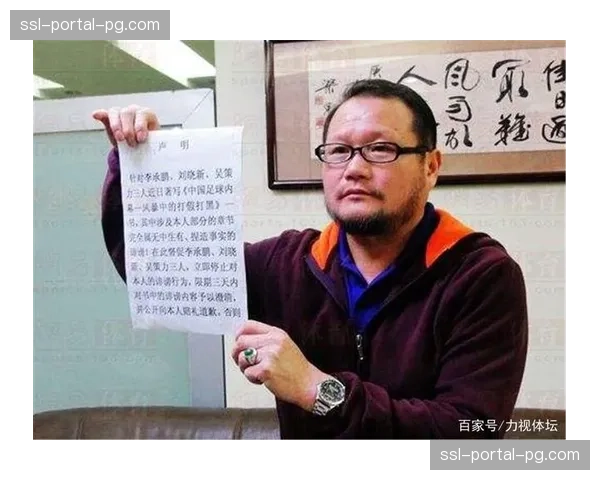 ssl-portal-pg.com
声 明
针对李承鹏、刘晓新、吴策
力三人近日著写《中国足球内
幕—风暴中的打假打黑》一
书，其中涉及本人部分的章节
完全属无中生有、捏造事实的
诽谤！在此督促李承鹏、刘晓
新、吴策力三人，立即停止对
本人的诽谤行为，限期三天内
对书中的诽谤内容予以澄清，
并公开向本人赔礼道歉，否则
人
风
最難
佳
百家号/力视体坛
ssl-portal-pg.com